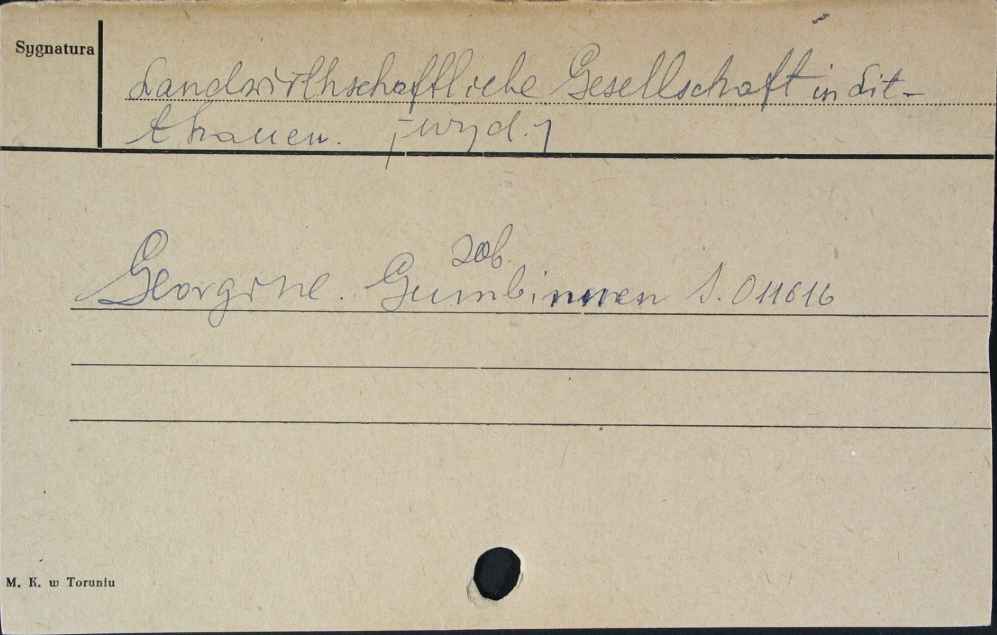 Sygnatura
Landwirthschaftliche Gesellschaft in Lit-
thauen. [wyd.]
zob.
Georgine. Gumbinnen S. 011616
M. K. w Toruniu